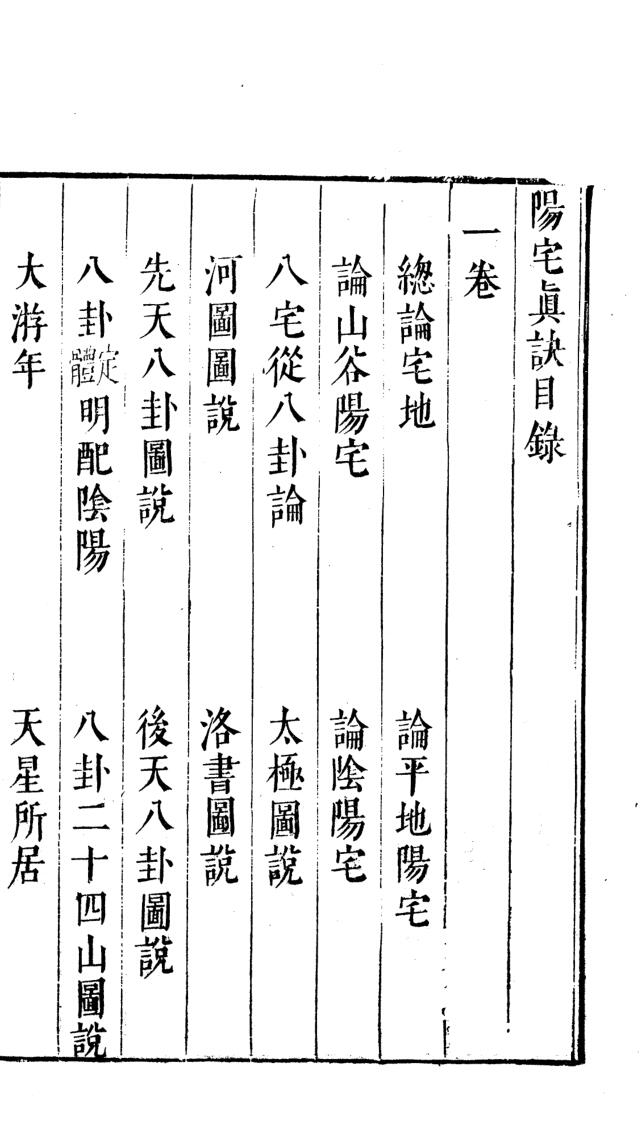 陽宅眞訣目錄
一卷
總論宅地　論平地陽宅
論山谷陽宅　論陰陽宅
八宅從八卦論　太極圖說
河圖圖說　洛書圖說
先天八卦圖說　後天八卦圖說
八卦定體明配陰陽　八卦二十四山圖說
大游年　天星所居